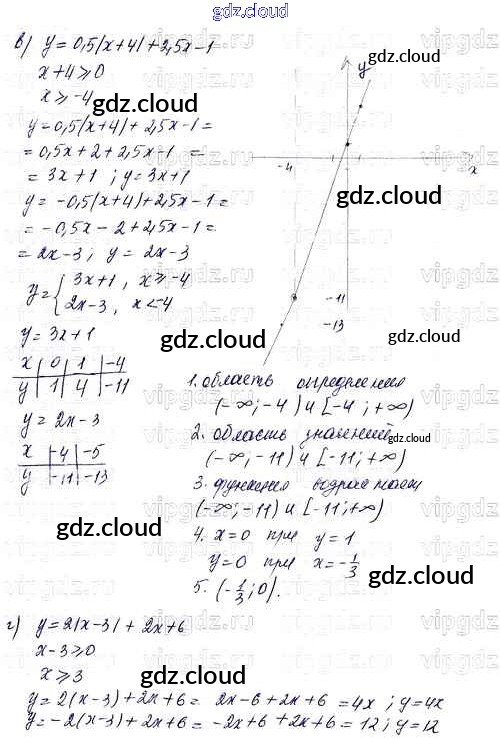 gdz.cloud
в) y = 0,5|x+4| + 2,5x-1
x+4 ≥ 0
x ≥ -4
y = 0,5(x+4) + 2,5x-1 =
= 0,5x + 2 + 2,5x-1 =
= 3x + 1 ; y = 3x+1
y = -0,5(x+4) + 2,5x-1 =
= -0,5x - 2 + 2,5x-1 =
= 2x-3 ; y = 2x-3
y = { 3x+1 , x ≥ -4
2x-3 , x < -4
y = 3x+1
x | 0 | 1 | -4
y | 1 | 4 | -11
y = 2x-3
x | -4 | -5
y | -11 | -13
y
-4 1 1 x
-11
-13
1. область определения
(-∞; -4) и [-4; +∞)
2. область значений
(-∞; -11) и [-11; +∞)
3. функция возрастает
(-∞; -11) и [-11; +∞)
4. x=0 при y=1
y=0 при x=-1/3
5. (-1/3; 0).
г) y = 2|x-3| + 2x+6
x-3 ≥ 0
x ≥ 3
y = 2(x-3) + 2x+6 = 2x-6+2x+6 = 4x ; y=4x
y = -2(x-3) + 2x+6 = -2x+6+2x+6 = 12 ; y=12
gdz.cloud
gdz.cloud
gdz.cloud
gdz.cloud
gdz.cloud
gdz.cloud
gdz.cloud
gdz.cloud
gdz.cloud
gdz.cloud